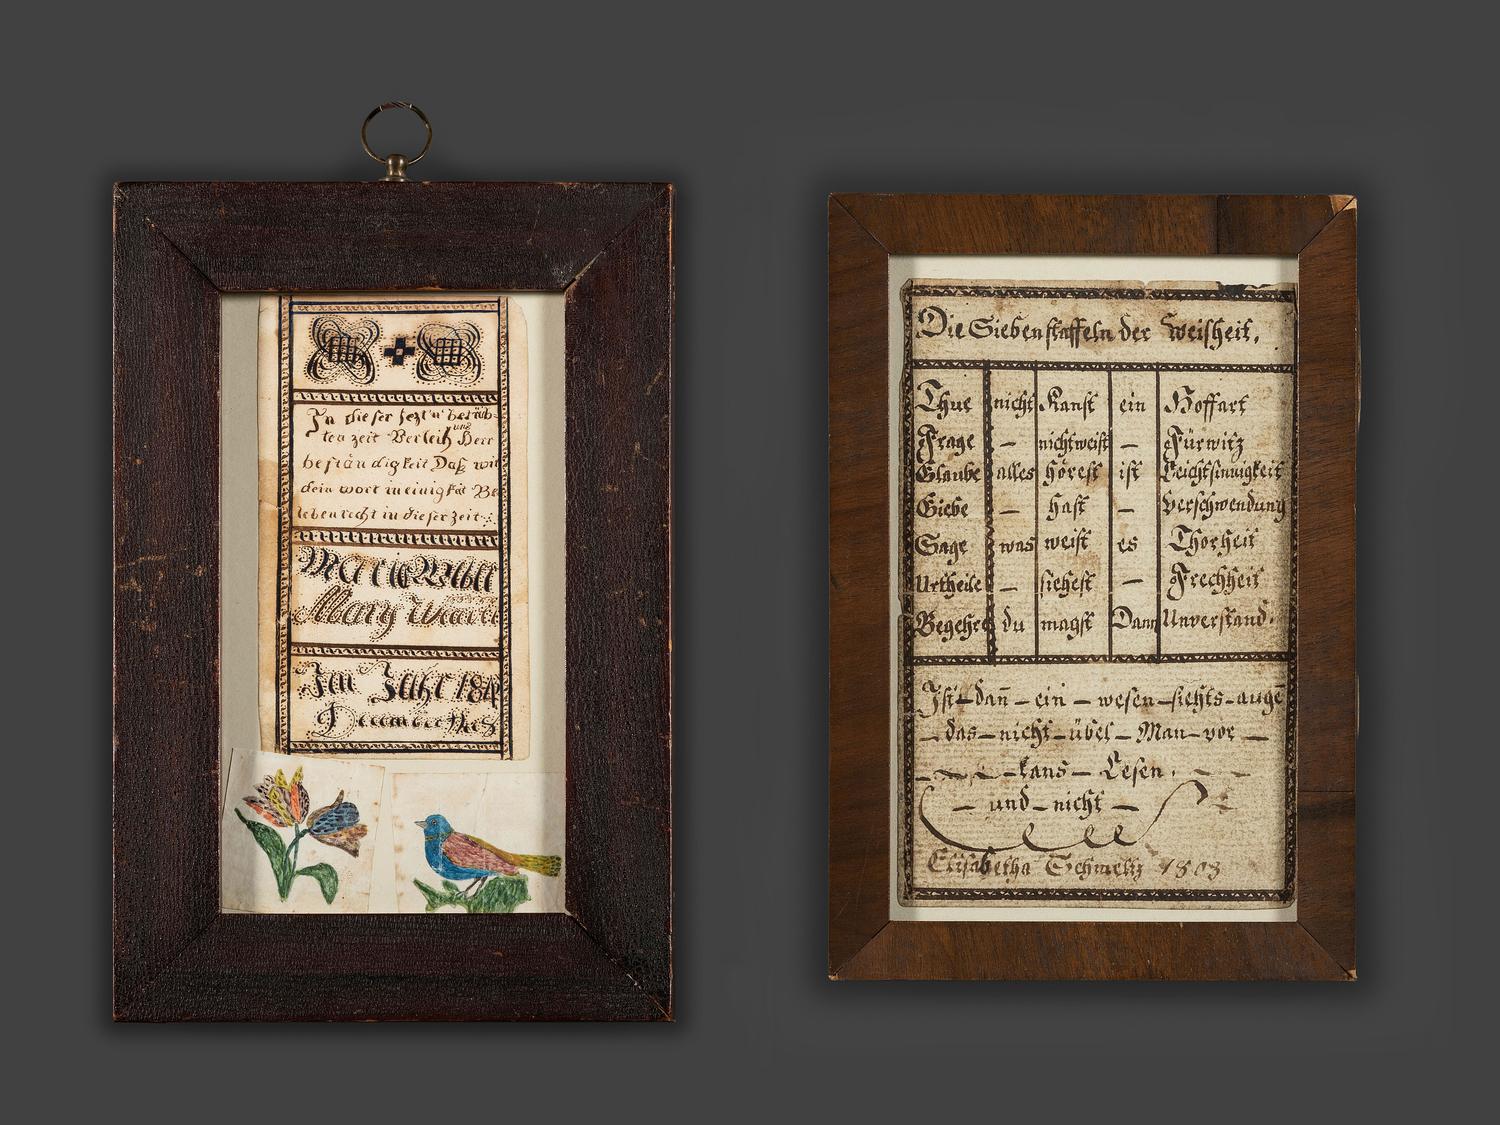 In dieser lezt'n betrüb-
ten zeit Verleih uns Herr
beständigkeit Daß wir
dein wort in einigkeit Be
leben recht in dieser zeit
Maria
Mary
Im Jahr 184
December
Die Siebenstaffeln der Weisheit.
Thue nicht Kanst ein Hoffart
Frage — nichtweist — Fürwitz
Glaube alles hörest ist Leichtsinnigkeit
Giebe — hast — Verschwendung
Sage was weist es Thorheit
Urtheile — siehest — Frechheit
Begehre du magst Dann Unverstand.
Ist — dañ — ein — wesen — siehts — auge
— das — nicht — übel — Man — vor —
— kans — Lesen.
— und — nicht —
Elisabetha Schmeltz 1803